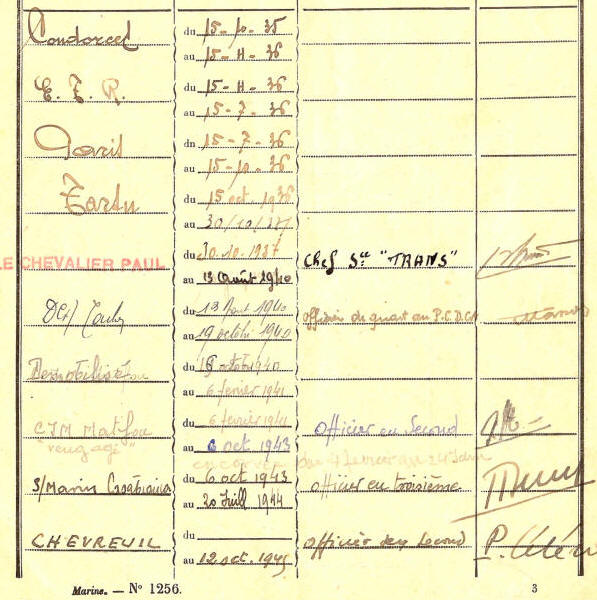 Condorcet
du 15-10-35
au 15-4-36
E. T. R.
du 15-4-36
au 15-7-36
Paris
du 15-7-36
au 15-10-36
Tartu
du 15 oct 1936
au 30/10/37
LE CHEVALIER PAUL
du 30.10.1937
Chef Sce "TRANS"
au 13 Août 1940
du 13 Aout 1940
officier de quart au P.C.D.C.A
au 19 octobre 1940
du
octobre 1940
au 6 fevrier 1941
CIM Matifou
du 6 fevrier 1941
officier en Second
"rengagé"
au 6 oct 1943
S/Marin
du 6 oct 1943
officier en troisième
au 20 Juill 1944
CHEVREUIL
du
officier en Second
au 12 oct. 1945
Marine. — N° 1256.
3